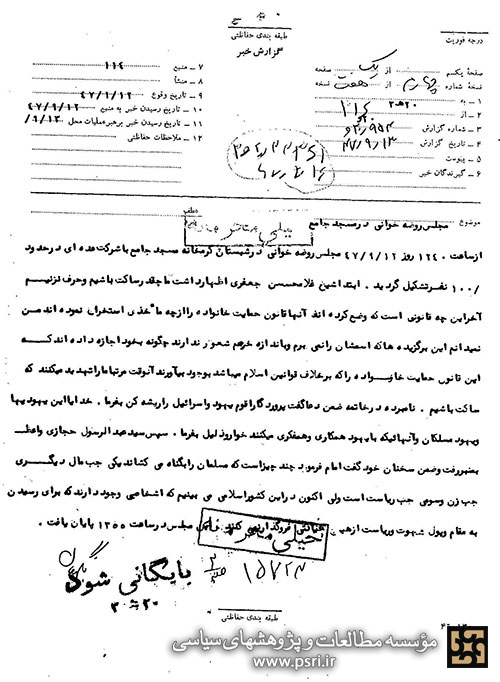 طبقه بندی حفاظتی
درجه فوریت
گزارش خبر
صفحه یکم از یک صفحه
نسخه شماره چهارم از هفت نسخه
۱ – به ۲۰ هـ ۳
۲ – از
۳ – شماره گزارش
۴ – تاریخ گزارش ۴۷/۹/۱۳
۵ – پیوست
۶ – گیرندگان خبر
۷ – منبع ۱۱۴
۸ – منشأ
۹ – تاریخ وقوع ۴۷/۹/۱۲
۱۰ – تاریخ رسیدن خبر به منبع ۴۷/۹/۱۲
۱۱ – تاریخ رسیدن خبر برهبر عملیات محل ۹/۱۳/
۱۲ – ملاحظات حفاظتی
موضوع مجلس روضه خوانی در مسجد جامع
خیلی محرمانه
از ساعت ۱۲۴۰ روز ۴۷/۹/۱۲ مجلس روضه خوانی در شبستان گرمخانه مسجد جامع با شرکت عده ای در حدود
۱۰۰/ نفر تشکیل گردید . ابتدا شیخ غلامحسین جعفری اظهار داشت ما چقدر ساکت باشیم و حرف نزنیم
آخر این چه قانونی است که وضع کرده اند آنها قانون حمایت خانواده را از چه مأخذی استخراج نموده اند من
نمیدانم این برگزیده ها که اسمشان را نمی برم و باندازه خرهم شعور ندارند چگونه بخود اجازه داده اند که
این قانون حمایت خانواده را که برخلاف قوانین اسلام میباشد بوجود بیآورند آنوقت مرتبا ما را تهدید میکنند که
ساکت باشیم . نامبرده در خاتمه ضمن دعا گفت پروردگارا قوم یهود و اسرائیل را ریشه کن بفرما . خدایا این یهودیها
و یهود مسلکان و آنهائیکه با یهود همکاری و همفکری میکنند خوار و ذلیل بفرما . سپس سید عبدالرسول حجازی واعظ
بمنبر رفت و ضمن سخنان خود گفت امام فرمود چند چیز است که مسلمان را بگناه می کشاند یکی حب مال دیگری
حب زن و سومی حب ریاست است ولی اکنون در این کشور اسلامی می بینیم که اشخاصی وجود دارند که برای رسیدن
به مقام و پول شهوت و ریاست از هیچ فروگذار نمی کنند مجلس در ساعت ۱۳۵۵ پایان یافت .
خیلی محرمانه
۱۵۷۲۳
بایگانی شود
۲۰ هـ ۳
طبقه بندی حفاظتی
مؤسسه مطالعات و پژوهشهای سیاسی
www.psri.ir